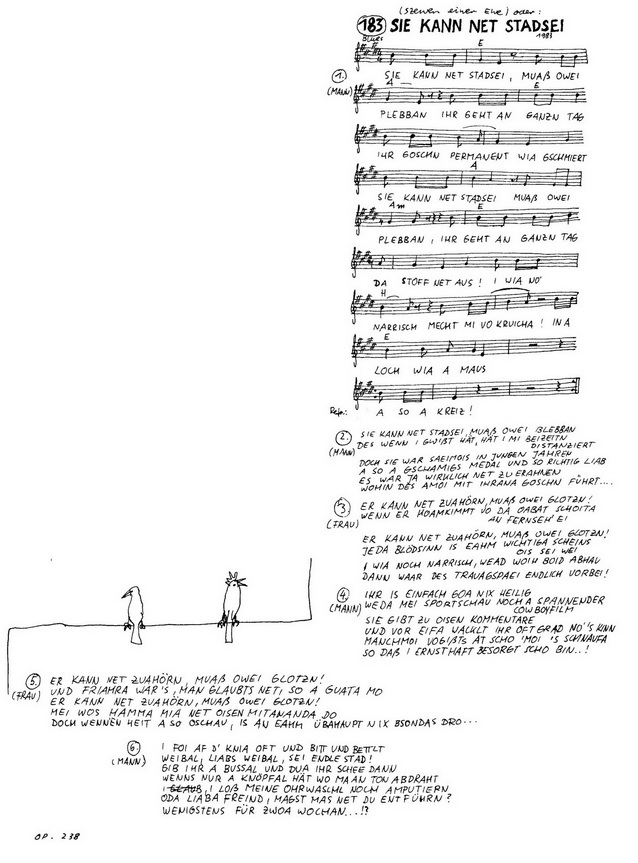 (SZENEN EINER EHE) ODER:
183 SIE KANN NET STADSEI
1983
BLUES
E
1. (MANN)
SIE KANN NET STADSEI, MUAß OWEI
A E
PLEBBAN IHR GEHT AN GANZN TAG
IHR GOSCHN PERMANENT WIA GSCHMIERT
A
SIE KANN NET STADSEI MUAß OWEI
Am E
PLEBBAN, IHR GEHT AN GANZN TAG
DA STOFF NET AUS! I WIA NO'
H
NARRISCH MECHT MI VOKRUICHA! IN A
E
LOCH WIA A MAUS
Refr.: A SO A KREIZ!
2. (MANN)
SIE KANN NET STADSEI, MUAß OWEI BLEBBAN
DES WENN I GWIßT HÄT, HÄT I MI BEIZEITN
DISTANZIERT
DOCH SIE WAR SAEIMOIS IN JUNGEN JAHREN
A SO A GSCHAMIGS MEDAL UND SO RICHTIG LIAB
ES WAR JA WIRKLICH NET ZU ERAHNEN
WOHIN DES AMOI MIT IHRANA GOSCHN FÜHRT....
3. (FRAU)
ER KANN NET ZUAHÖRN, MUAß OWEI GLOTZN!
WENN ER HOAMKIMMT VO DA OABAT SCHOITA
AN FERNSEH' EI
ER KANN NET ZUAHÖRN, MUAß OWEI GLOTZN!
JEDA BLÖDSINN IS EAHM WICHTIGA SCHEINS
OIS SEI WEI
I WIA NOCH NARRISCH, WEAD WOIH BOID ABHAU
DANN WAAR DES TRAUAGSPAEI ENDLICH VORBEI!
4. (MANN)
IHR IS EINFACH GOA NIX HEILIG
WEDA MEI SPORTSCHAU NOCH A SPANNENDER
COWBOYFILM
SIE GIBT ZU OISEN KOMMENTARE
UND VOR EIFA WACKLT IHR OFT GRAD NO'S KINN
MANCHMOI VOGIßTS AT SCHO 'MOI 'S SCHNAUFA
SO DAß I ERNSTHAFT BESORGT SCHO BIN..!
5. (FRAU)
ER KANN NET ZUAHÖRN, MUAß OWEI GLOTZN!
UND FRIAHRA WAR'S, MAN GLAUBTS NET, SO A GUATA MO
ER KANN NET ZUAHÖRN, MUAß OWEI GLOTZN!
MEI WOS HAMMA MIA NET OISEN MITANANDA DO
DOCH WENNEN HEIT A SO OSCHAU, IS AN EAHM ÜBAHAUPT NIX BSONDAS DRO...
6. (MANN)
I FOI AF D' KNIA OFT UND BITT UND BETTLT
WEIBAL, LIABS WEIBAL, SEI ENDLE STAD!
GIB IHR A BUSSAL UND DUA IHR SCHEE DANN
WENNS NUR A KNÖPFAL HÄT WO MA AN TON ABDRAHT
I GLAUB, I LOß MEINE OHRWASCHL NOCH AMPUTIERN
ODA LIABA FREIND, MAGST MAS NET DU ENTFÜHRN?
WENIGSTENS FÜR ZWOA WOCHAN...!?
OP. 238